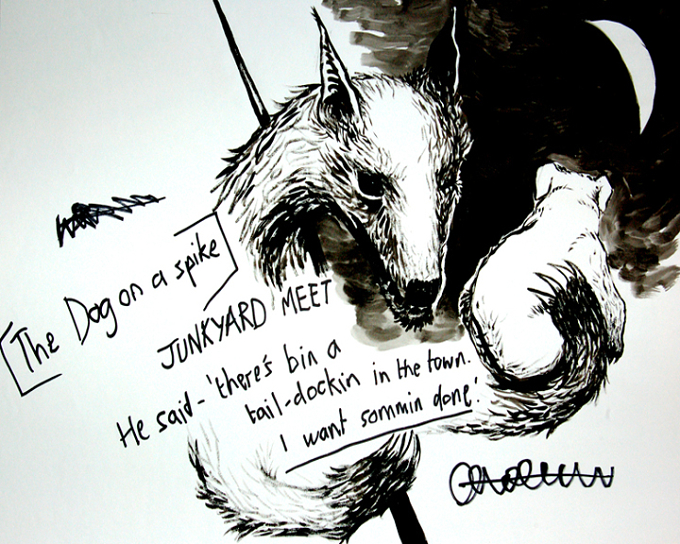 [The Dog on a spike]
JUNKYARD MEET
He said - 'there's bin a
tail-dockin in the town.
I want sommin done'